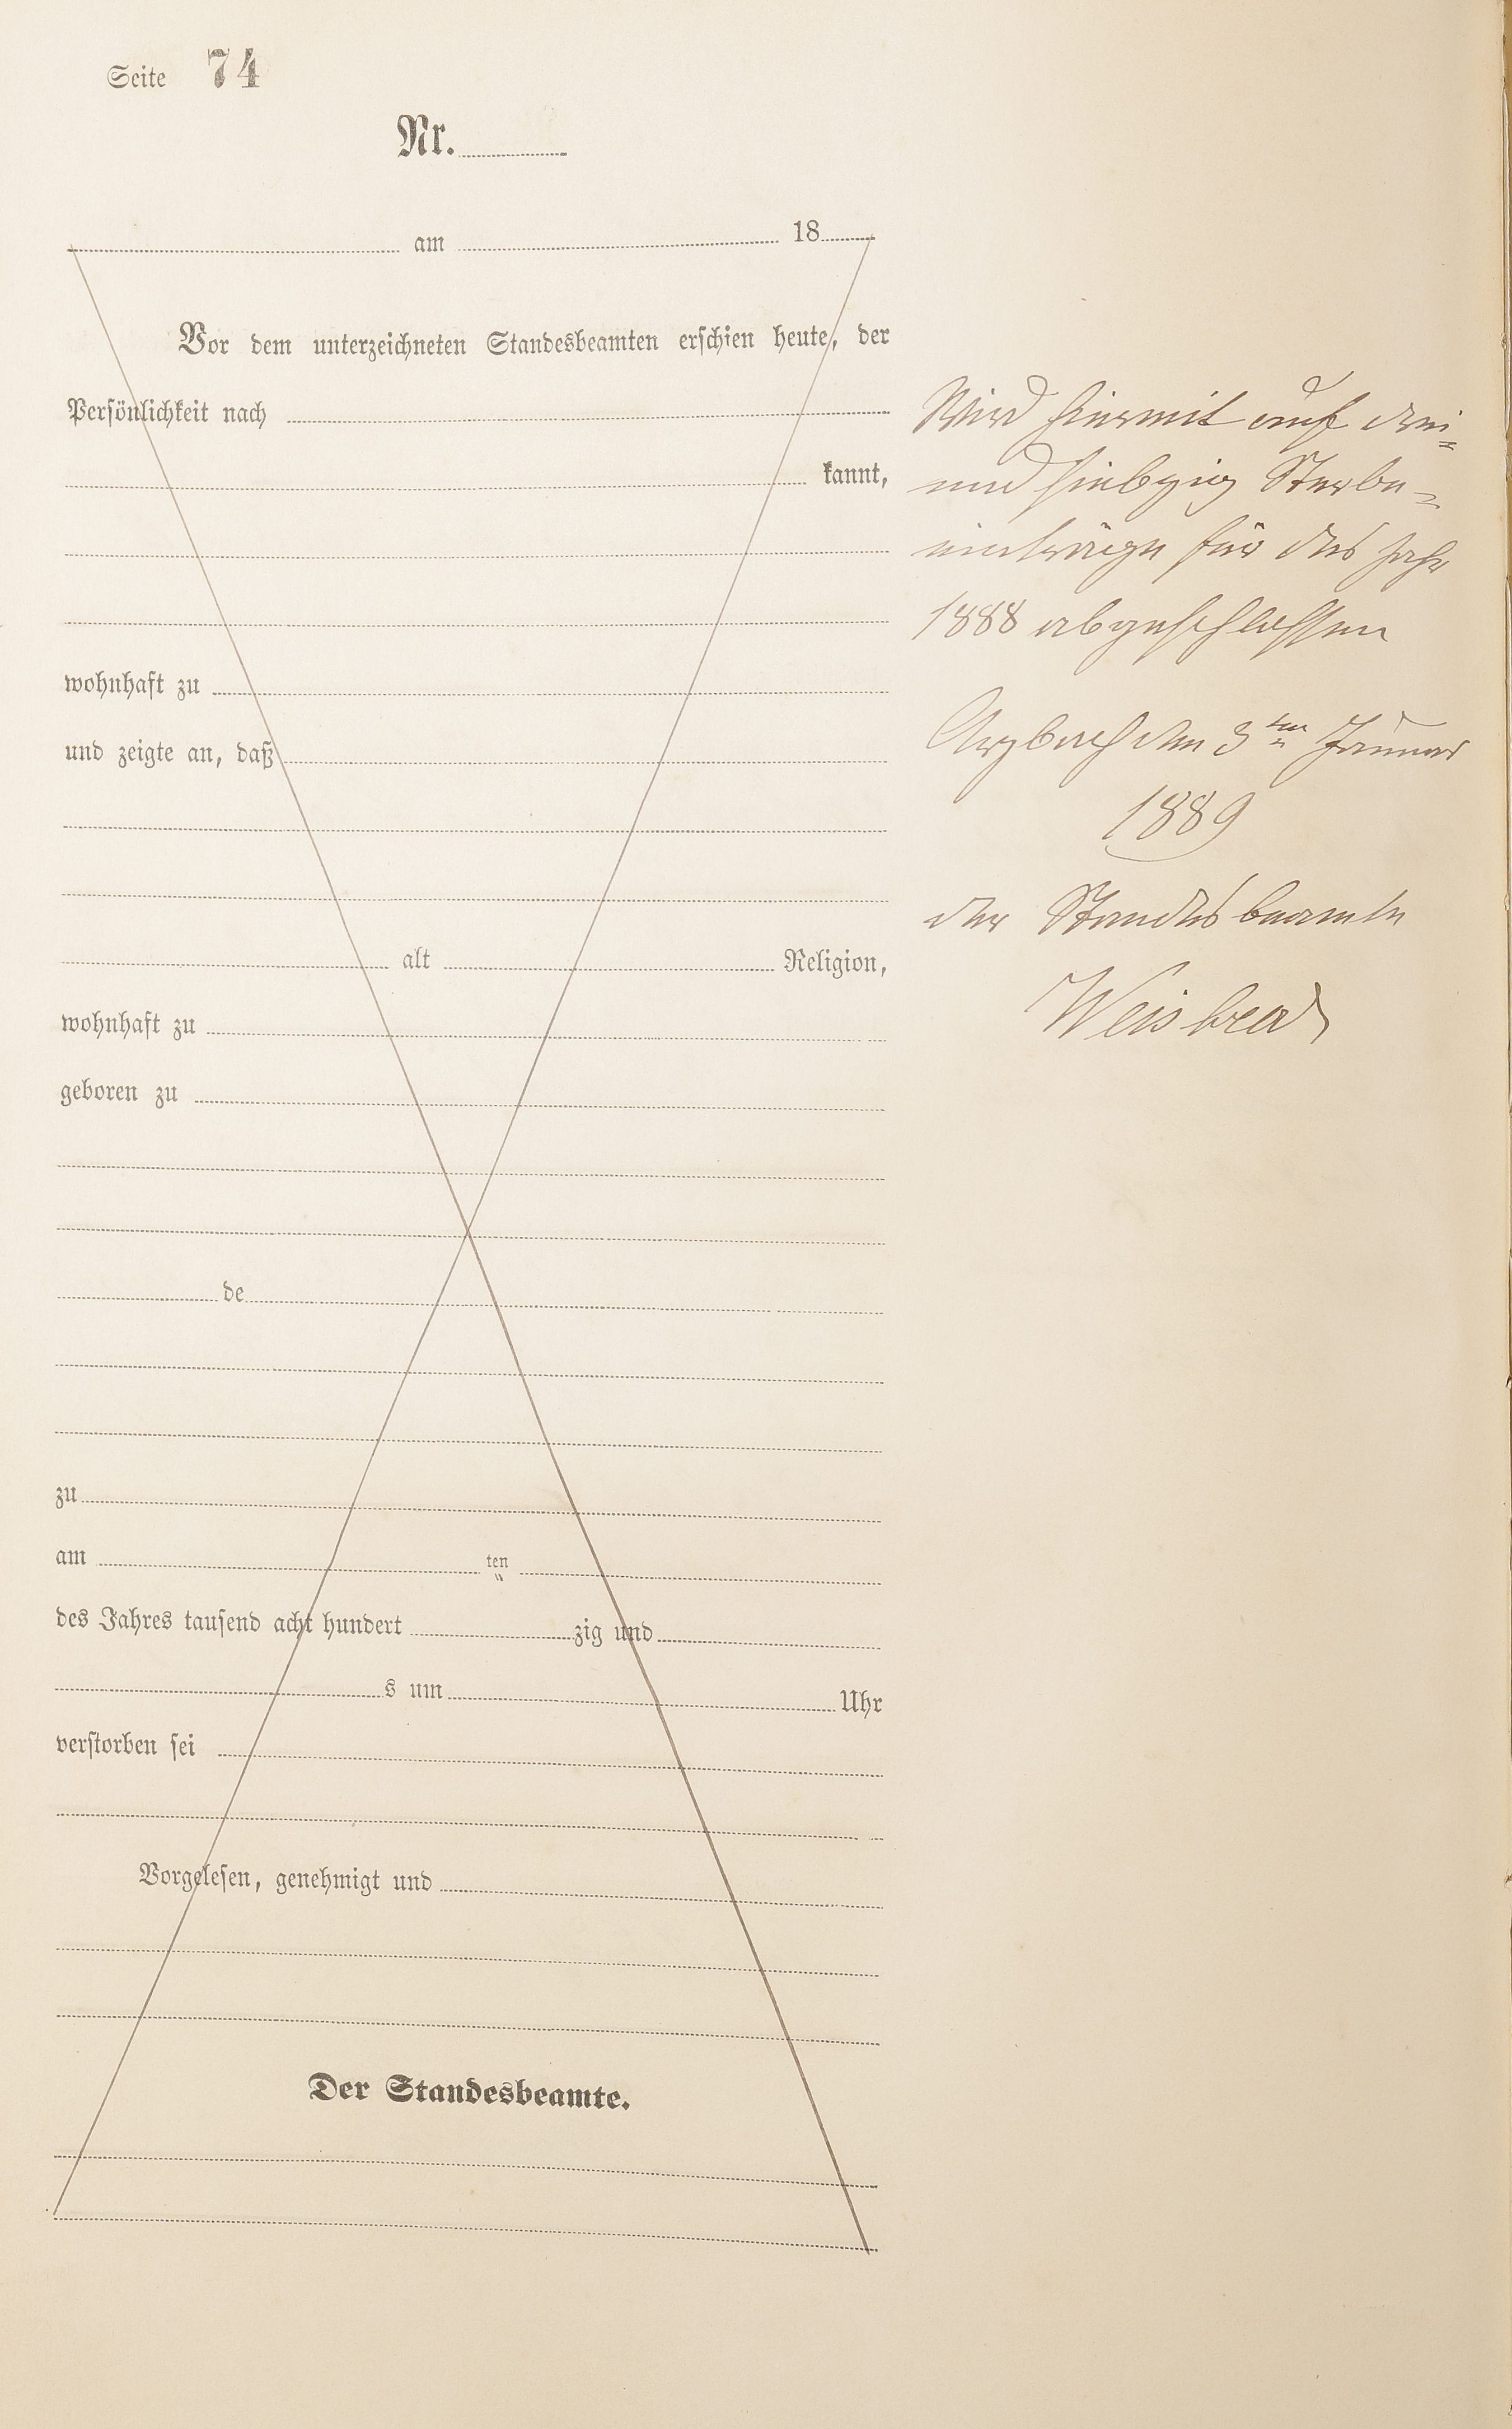 Seite 74
Nr.
am 18
Vor dem unterzeichneten Standesbeamten erschien heute, der
Persönlichkeit nach
kannt,
wohnhaft zu
und zeigte an, daß
alt Religion,
wohnhaft zu
geboren zu
de
zu
am ten
des Jahres tausend acht hundert zig und
s um Uhr
verstorben sei
Vorgelesen, genehmigt und
Der Standesbeamte.
Wird hiermit auf drei=
und siebzig Sterbe=
einträge für das Jahr
1888 abgeschlossen
Arzbach den 3ten Januar
1889
der Standesbeamte
Weisbrod